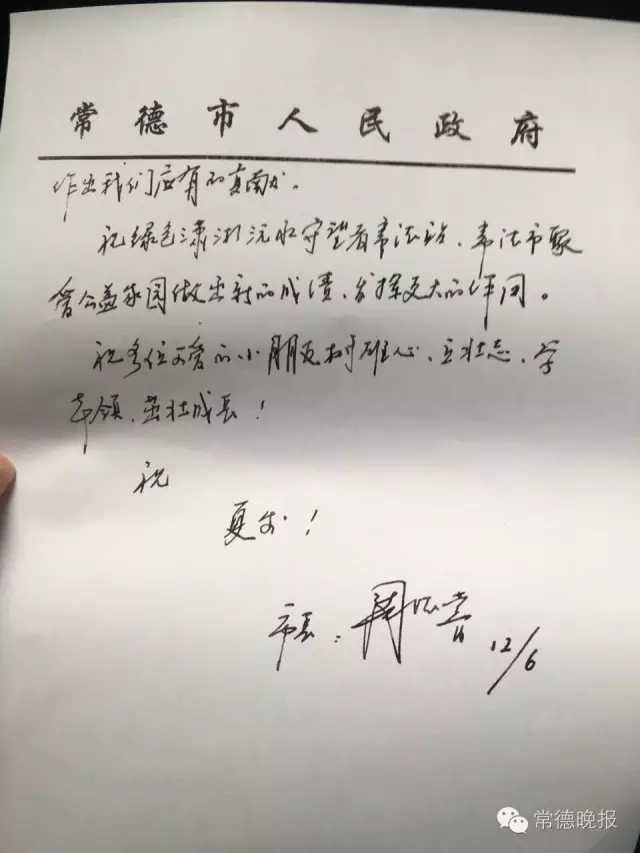 常德市人民政府
作出我们应有的贡献。
祝绿色潇湘沅水守望者常德站、常德市聚
舍公益家园做出新的成绩，发挥更大的作用。
祝各位可爱的小朋友树雄心、立壮志、学
本领、茁壮成长！
祝
夏安！
市长：周德睿
12/6
常德晚报